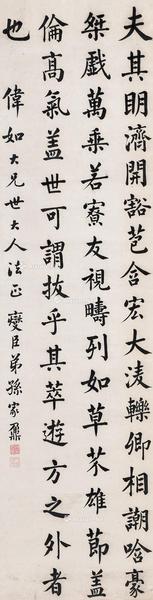 夫其明濟開豁苞含宏大淩轢卿相謿哈豪
桀戲萬乘若寮友視疇列如草芥雄節盖
倫高氣盖世可謂拔乎其萃遊方之外者
也 偉如大兄世大人法正 燮臣弟孫家鼐